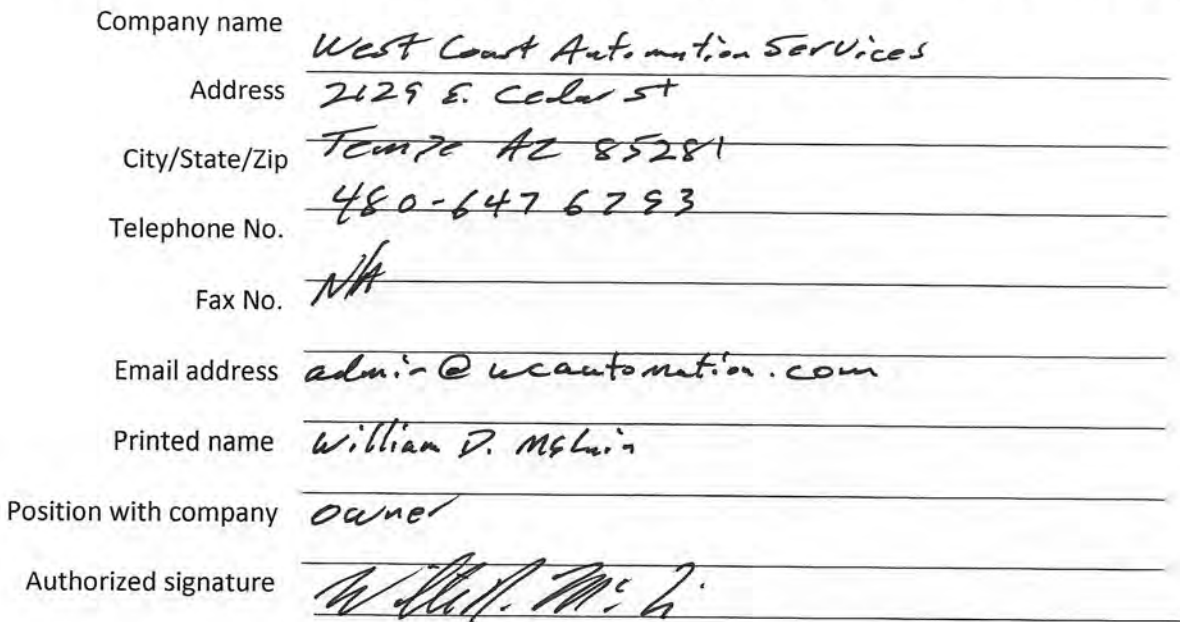 Company name West Coast Automation Services
Address 2129 E. Cedar St
City/State/Zip Tempe AZ 85281
Telephone No. 480-647 6793
Fax No. N/A
Email address admin@wcautomation.com
Printed name William D.
Position with company owner
Authorized signature